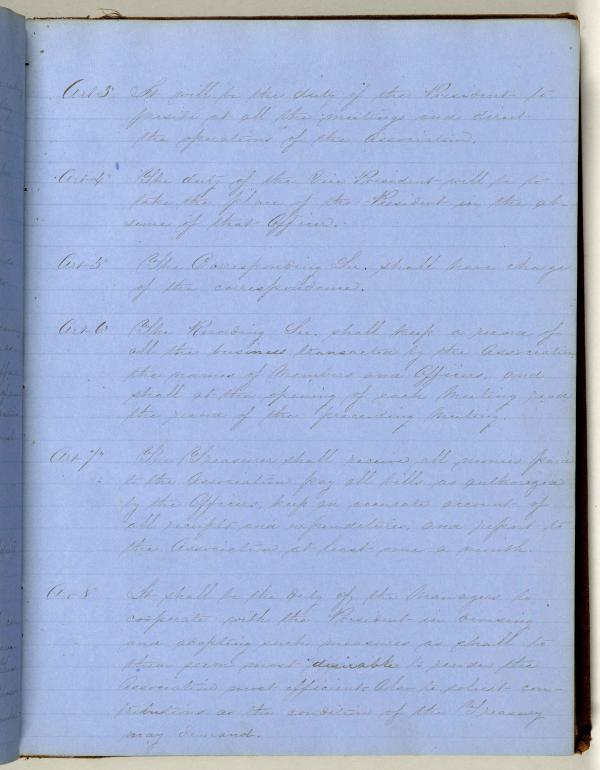 Art 3 It will be the duty of the President to
preside at all the meetings and direct
the operations of the Association.
Art 4 The duty of the Vice President will be to
take the place of the President in the ab-
sence of that Officer.
Art 5 The Corresponding Sec. shall have charge
of the correspondence.
Art 6 The Recording Sec. shall keep a record of
all the business transacted by the Association
the names of Members and Officers, and
shall at the opening of each Meeting read
the record of the preceding Meeting.
Art 7 The Treasurer shall receive all monies paid
to the Association pay all bills as authorized
by the Officers, keep an accurate account of
all receipts and expenditures, and report to
the Association at least once a month.
Art 8 It shall be the duty of the Managers to
cooperate with the President in devising
and adopting such measures as shall to
them seem most desirable to render the
Association most efficient. Also to solicit con-
tributions as the condition of the Treasury
may demand.